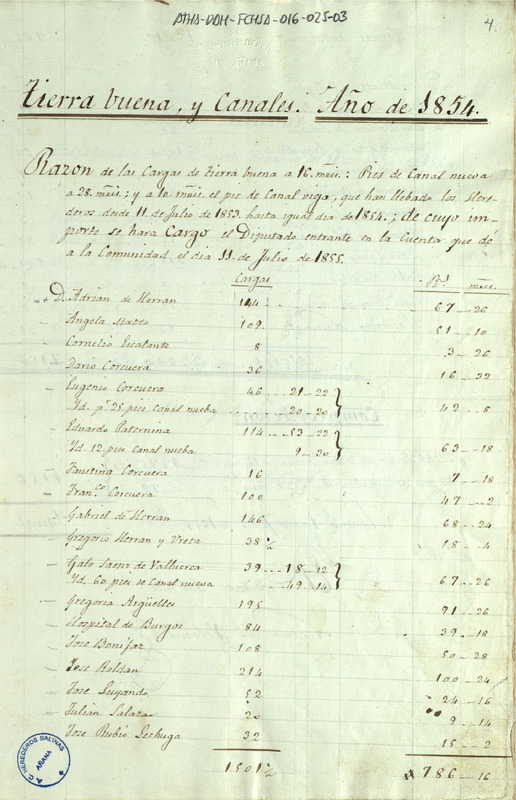 ATHA-DAH-FCHSA-016-025-03
4.
Tierra buena, y Canales. Año de 1854.
Razon de las Cargas de tierra buena a 16. mrs.: Pies de Canal nueva
a 28. mrs.; y a 10. mrs. el pie de Canal vija, que han llebado los Here-
deros desde 11 de Julio de 1853. hasta igual dia de 1854.; de cuyo im-
porte se hara Cargo el Diputado entrante en la Cuenta que dé
a la Comunidad el dia 11. de Julio de 1855.
Cargas Rs. mrs.
D. Adrian de Herran 144 67 .. 26
Angela Mateo 109 51 .. 10
Cornelio Escalante 8 3 .. 26
Dario Corcuera 36 16 .. 32
Eugenio Corcuera 46 ... 21 .. 22
Yd. pr. 25 pies canal nueba ... 20 .. 20 42 .. 8
Eduardo Paternina 114 ... 53 .. 22
Yd. 12 pies canal nueba 9 .. 30 63 .. 18
Faustina Corcuera 16 7 .. 18
Franco. Corcuera 100 47 .. 2
Gabriel de Herran 146 68 .. 24
Gregorio Herran y Ureta 38 ½ 18 .. 4
Galo Saenz de Valluerca 39 ... 18 .. 12
Yd. 60 pies de canal nueva ... 49 .. 14 67 .. 26
Gregoria Argüelles 195 91 .. 26
Hospital de Burgos 84 39 .. 18
Jose Bonifaz 108 50 .. 28
Jose Roldan 214 100 .. 24
Jose Luyando 52 24 .. 16
Julian Salazar 20 9 .. 14
Jose Rubio Lechuga 32 15 .. 2
1501½ 786 .. 16
A.C. HEREDEROS SALINAS
AÑANA